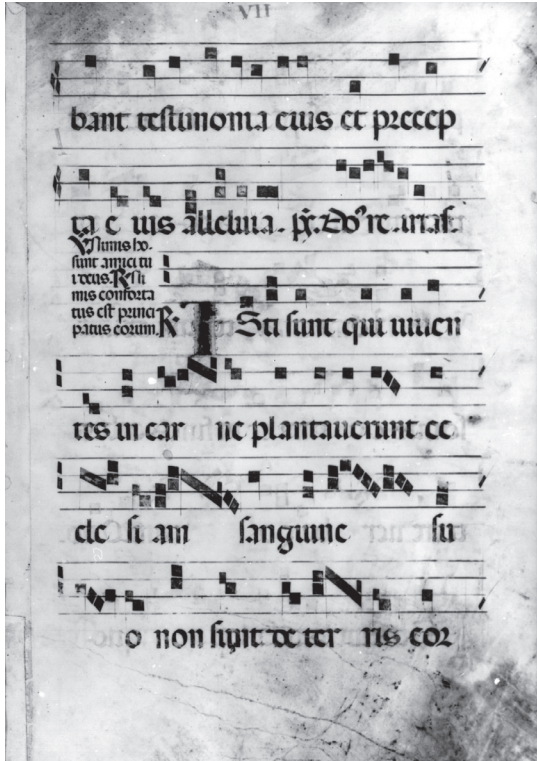 VII
bant testimonia eius et precep
ta e ius alleluia.
V Nimis ho-
sunt amici tu
i deus. R Ni
mis conforta
tus est princi
patus eorum. R
I Sti sunt qui uiuen
tes in car ne plantauerunt ec
cle si am sanguine su
o non sunt de ter ris eor